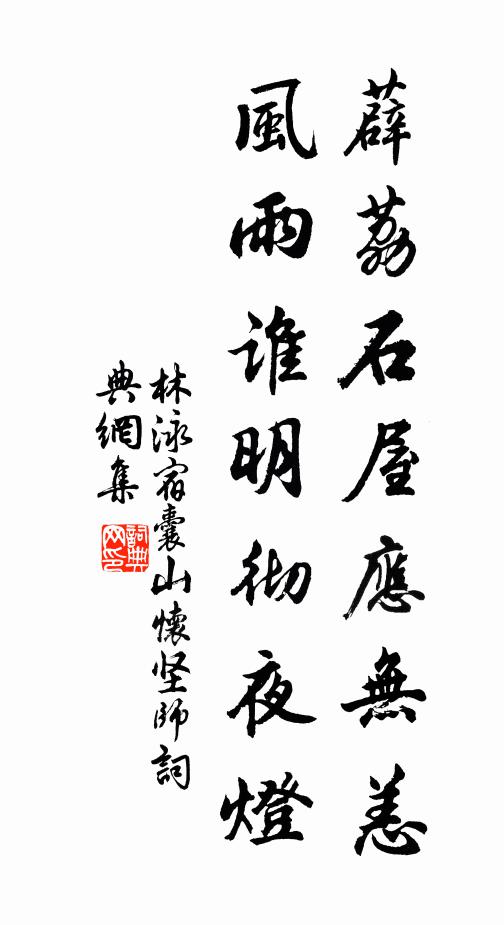 薜荔石屋應無恙
風雨誰明彻夜燈
林泳宿囊山懷坚師詞
典網集
詞典网印